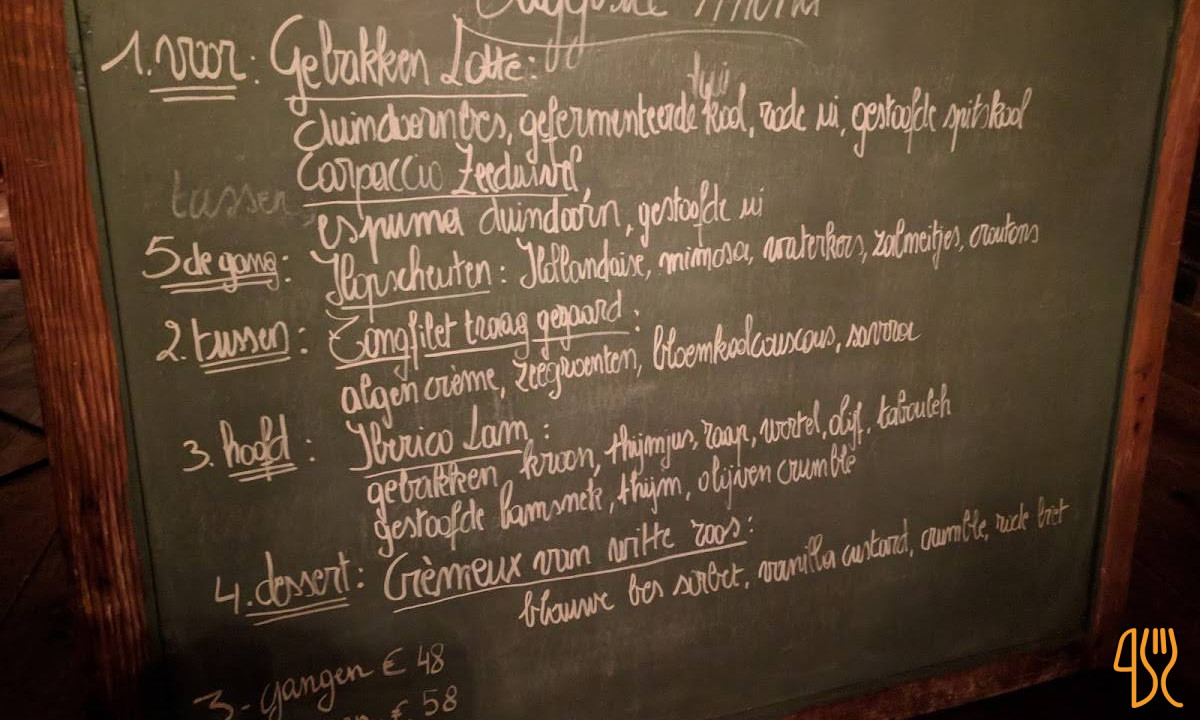 Suggestie Menu
1. voor: Gebakken Lotte:
tuin
duindoornbes, gefermenteerde kool, rode ui, gestoofde spitskool
Carpaccio Zeeduivel,
tussen
espuma duindoorn, gestoofde ui
5de gang: Hopscheuten: Hollandaise, mimosa, waterkers, zalmeitjes, croutons
2. tussen: Zongfilet traag gegaard:
algen crème, zeegroenten, bloemkoolcouscous, savora
3. hoofd: Iberico Lam:
gebakken kroon, thijmjus, raap, wortel, olijf, tabouleh
gestoofde lamsnek, thijm, olijven crumble
4. dessert: Crèmeux van witte roos:
blauwe bes sorbet, vanilla custard, crumble, rode biet
3-gangen € 48
€ 58